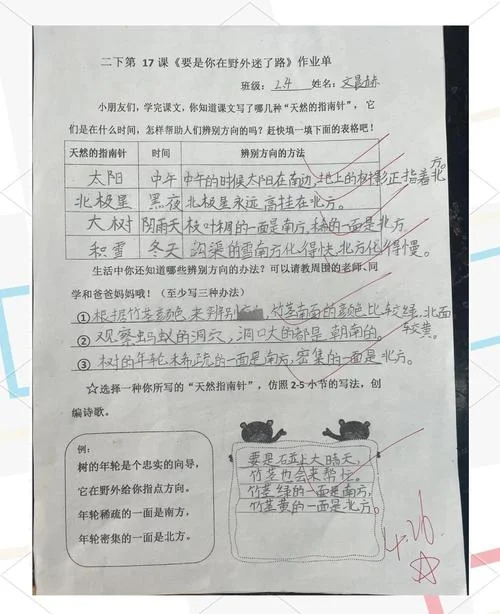 二下第 17 课《要是你在野外迷了路》作业单
班级: 2.4 姓名:
小朋友们，学完课文，你知道课文写了哪几种“天然的指南针”，它
们是在什么时间，怎样帮助人们辨别方向的吗？赶快填一填下面的表格吧！
天然的指南针 时间 辨别方向的方法
太阳 中午 中午的时候太阳在南边,地上的树影正指着北方。
北极星 黑夜 北极星永远高挂在北方。
大树 阴雨天 枝叶稠的一面是南方,稀的一面是北方
积雪 冬天 沟渠的雪南方化得快,北方化得慢。
生活中你还知道哪些辨别方向的办法？可以请教周围的老师、同
学和爸爸妈妈哦！（至少写三种办法）
①根据竹茎颜色来辨别 竹茎南面的颜色比较绿,北面较黄。
②观察蚂蚁的洞穴,洞口大的都是朝南的。
③树的年轮稀疏的一面是南方,密集的一面是北方。
☆选择一种你所写的“天然指南针”，仿照 2-5 小节的写法，创
编诗歌。
例：
树的年轮是个忠实的向导，
它在野外给你指点方向。
年轮稀疏的一面是南方，
年轮密集的一面是北方。
要是碰上大晴天,
竹茎也会来帮忙。
竹茎绿的一面是南方,
竹茎黄的一面是北方。
4.26